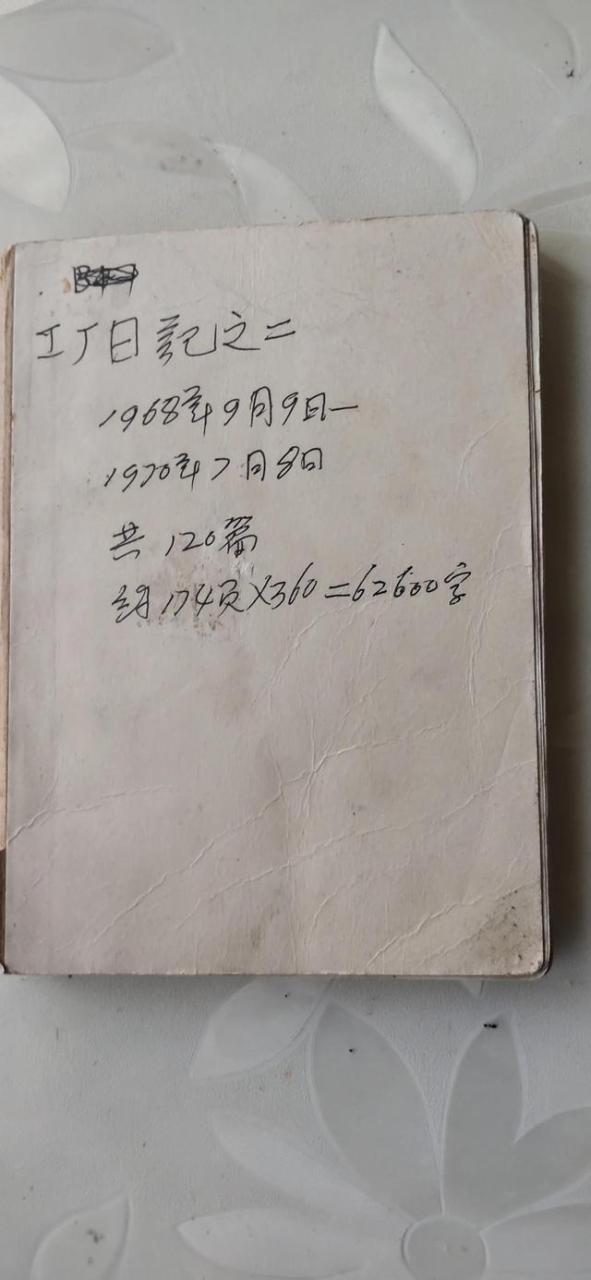 工厂日记之二
1968年9月9日—
1970年7月8日
共120篇
约174页×360=62600字